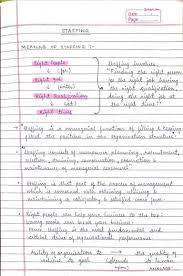 Date
Page
STAFFING
MEANING OF STAFFING :-
Right People
(for)
Right Job
(with)
Right Qualifications
(at)
Right time
Staffing involves,
"Finding the right person
for the right job having
the right qualification
doing the right job at
the right time."
Staffing is a managerial function of filling & keeping
filled the positions in the organisation structure.
Staffing consist of manpower planning, recruitment,
selection, training, compensation, promotion &
maintenance of managerial
Staffing is that part of the process of management
which is concerned with obtaining, utilising &
maintaining a satisfactory & satisfied work force
Right people can help your business to the top;
wrong people can break your business.
Thus, staffing is the most fundamental and
critical drive of organisational performance
Ability of organisations to the quality of
achieve its goal (depends its human